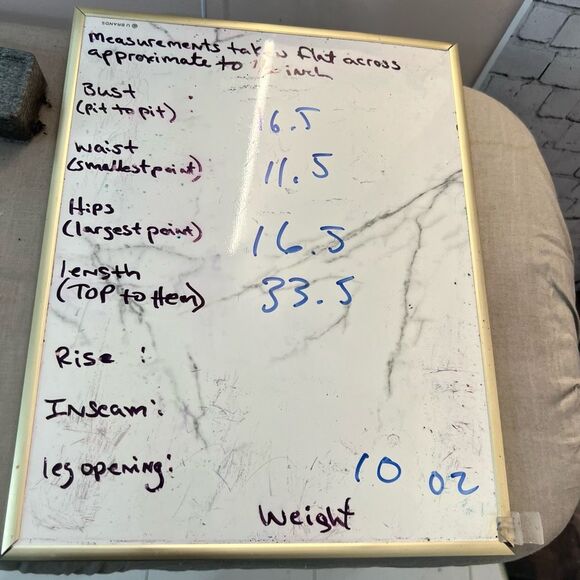 U BRANDS
measurements taken flat across
approximate to inch
Bust
(pit to pit)
16.5
waist
(smallest point)
11.5
Hips
(largest point)
16.5
length
(TOP to Hem)
33.5
Rise :
Inseam:
leg opening:
10 oz
Weight